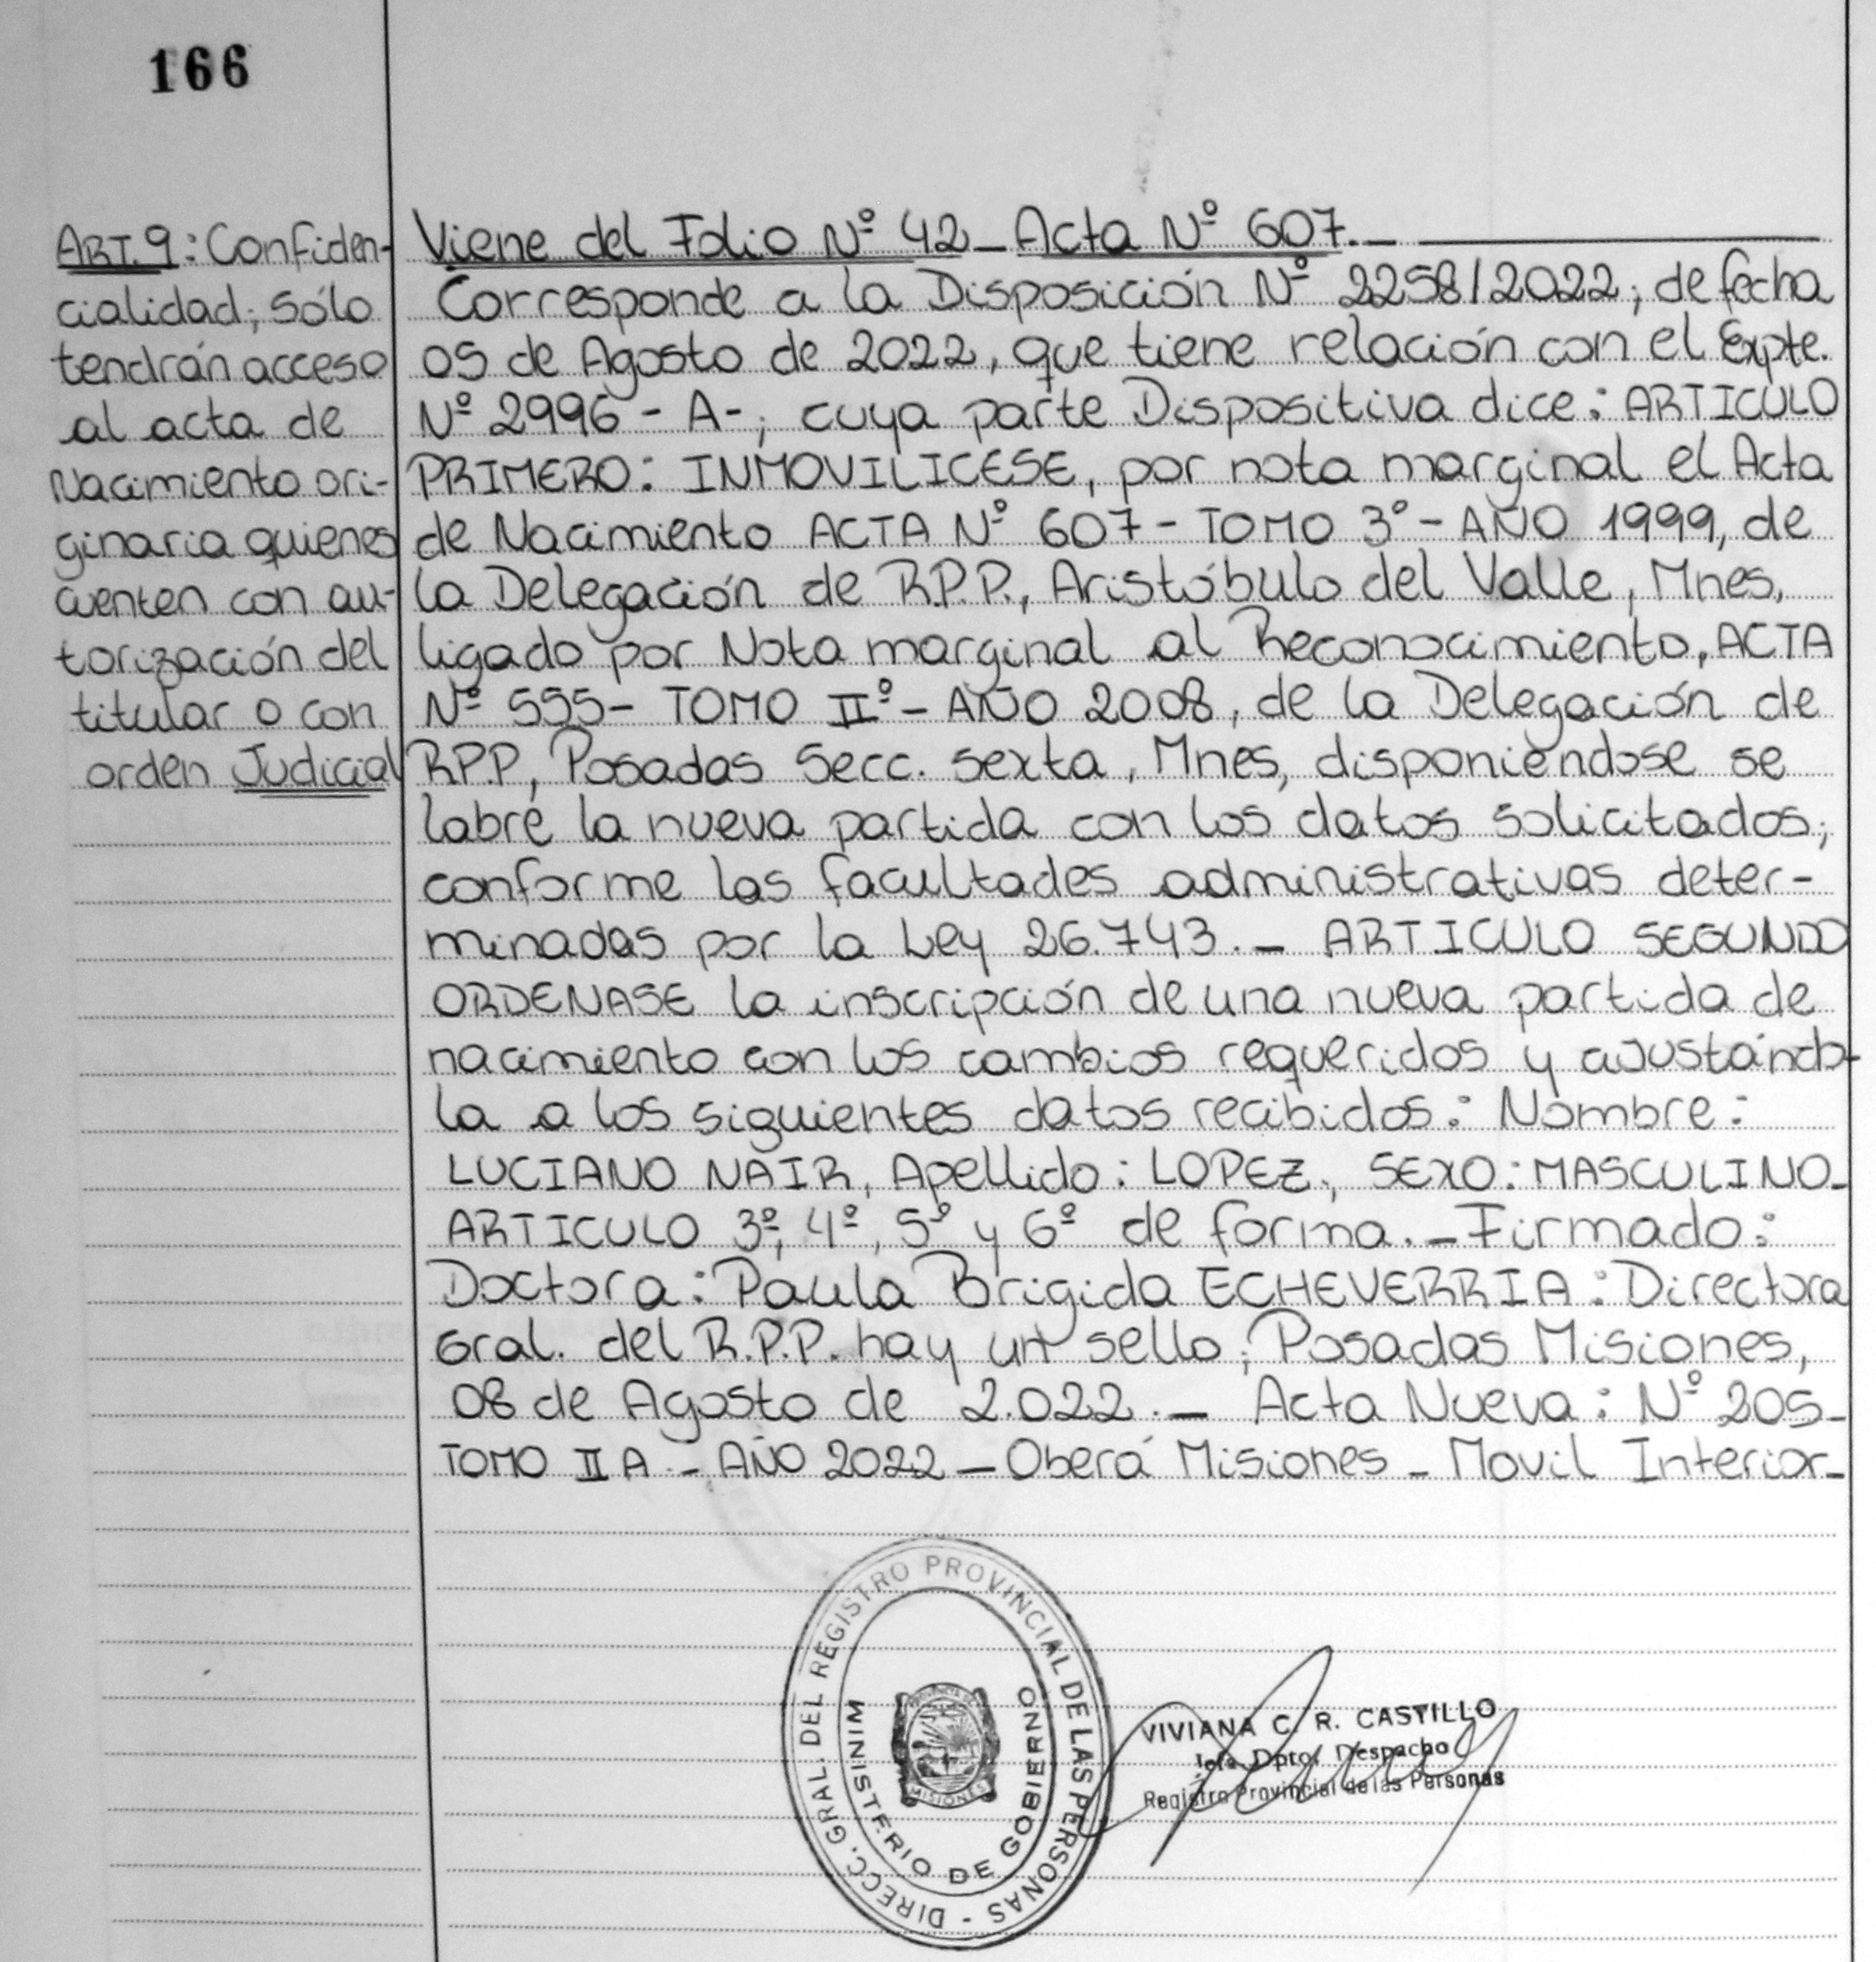 166
ART. 9: Confiden-
cialidad; sólo
tendrán acceso
al acta de
Nacimiento ori-
ginaria quienes
cuenten con au-
torización del
titular o con
orden Judicial
Viene del Folio Nº 42 _ Acta Nº 607._
Corresponde a la Disposición Nº 2258/2022; de fecha
05 de Agosto de 2022, que tiene relación con el Expte.
Nº 2996 - A-; cuya parte Dispositiva dice: ARTICULO
PRIMERO: INMOVILICESE, por nota marginal el Acta
de Nacimiento ACTA Nº 607 - TOMO 3º - AÑO 1999, de
la Delegación de R.P.P., Aristóbulo del Valle, Mnes,
ligado por Nota marginal al Reconocimiento, ACTA
Nº 555- TOMO IIº - AÑO 2008, de la Delegación de
RPP, Posadas Secc. sexta, Mnes, disponiéndose se
labre la nueva partida con los datos solicitados;
conforme las facultades administrativas deter-
minadas por la Ley 26.743. _ ARTICULO SEGUNDO
ORDENASE la inscripción de una nueva partida de
nacimiento con los cambios requeridos y ajustándo-
la a los siguientes datos recibidos: Nombre:
LUCIANO NAIR, Apellido: LOPEZ, SEXO: MASCULINO_
ARTICULO 3º, 4º, 5º y 6º de forma. _ Firmado:
Doctora: Paula Brigida ECHEVERRIA: Directora
Gral. del R.P.P. hay un sello; Posadas Misiones,
08 de Agosto de 2.022. _ Acta Nueva: Nº 205_
TOMO II A - AÑO 2022 _ Oberá Misiones _ Movil Interior_
DIRECC. GRAL. DEL REGISTRO PROVINCIAL DE LAS PERSONAS -
MINISTERIO DE GOBIERNO
MISIONES
VIVIANA C. R. CASTILLO
Jefa Dpto. Despacho
Registro Provincial de las Personas